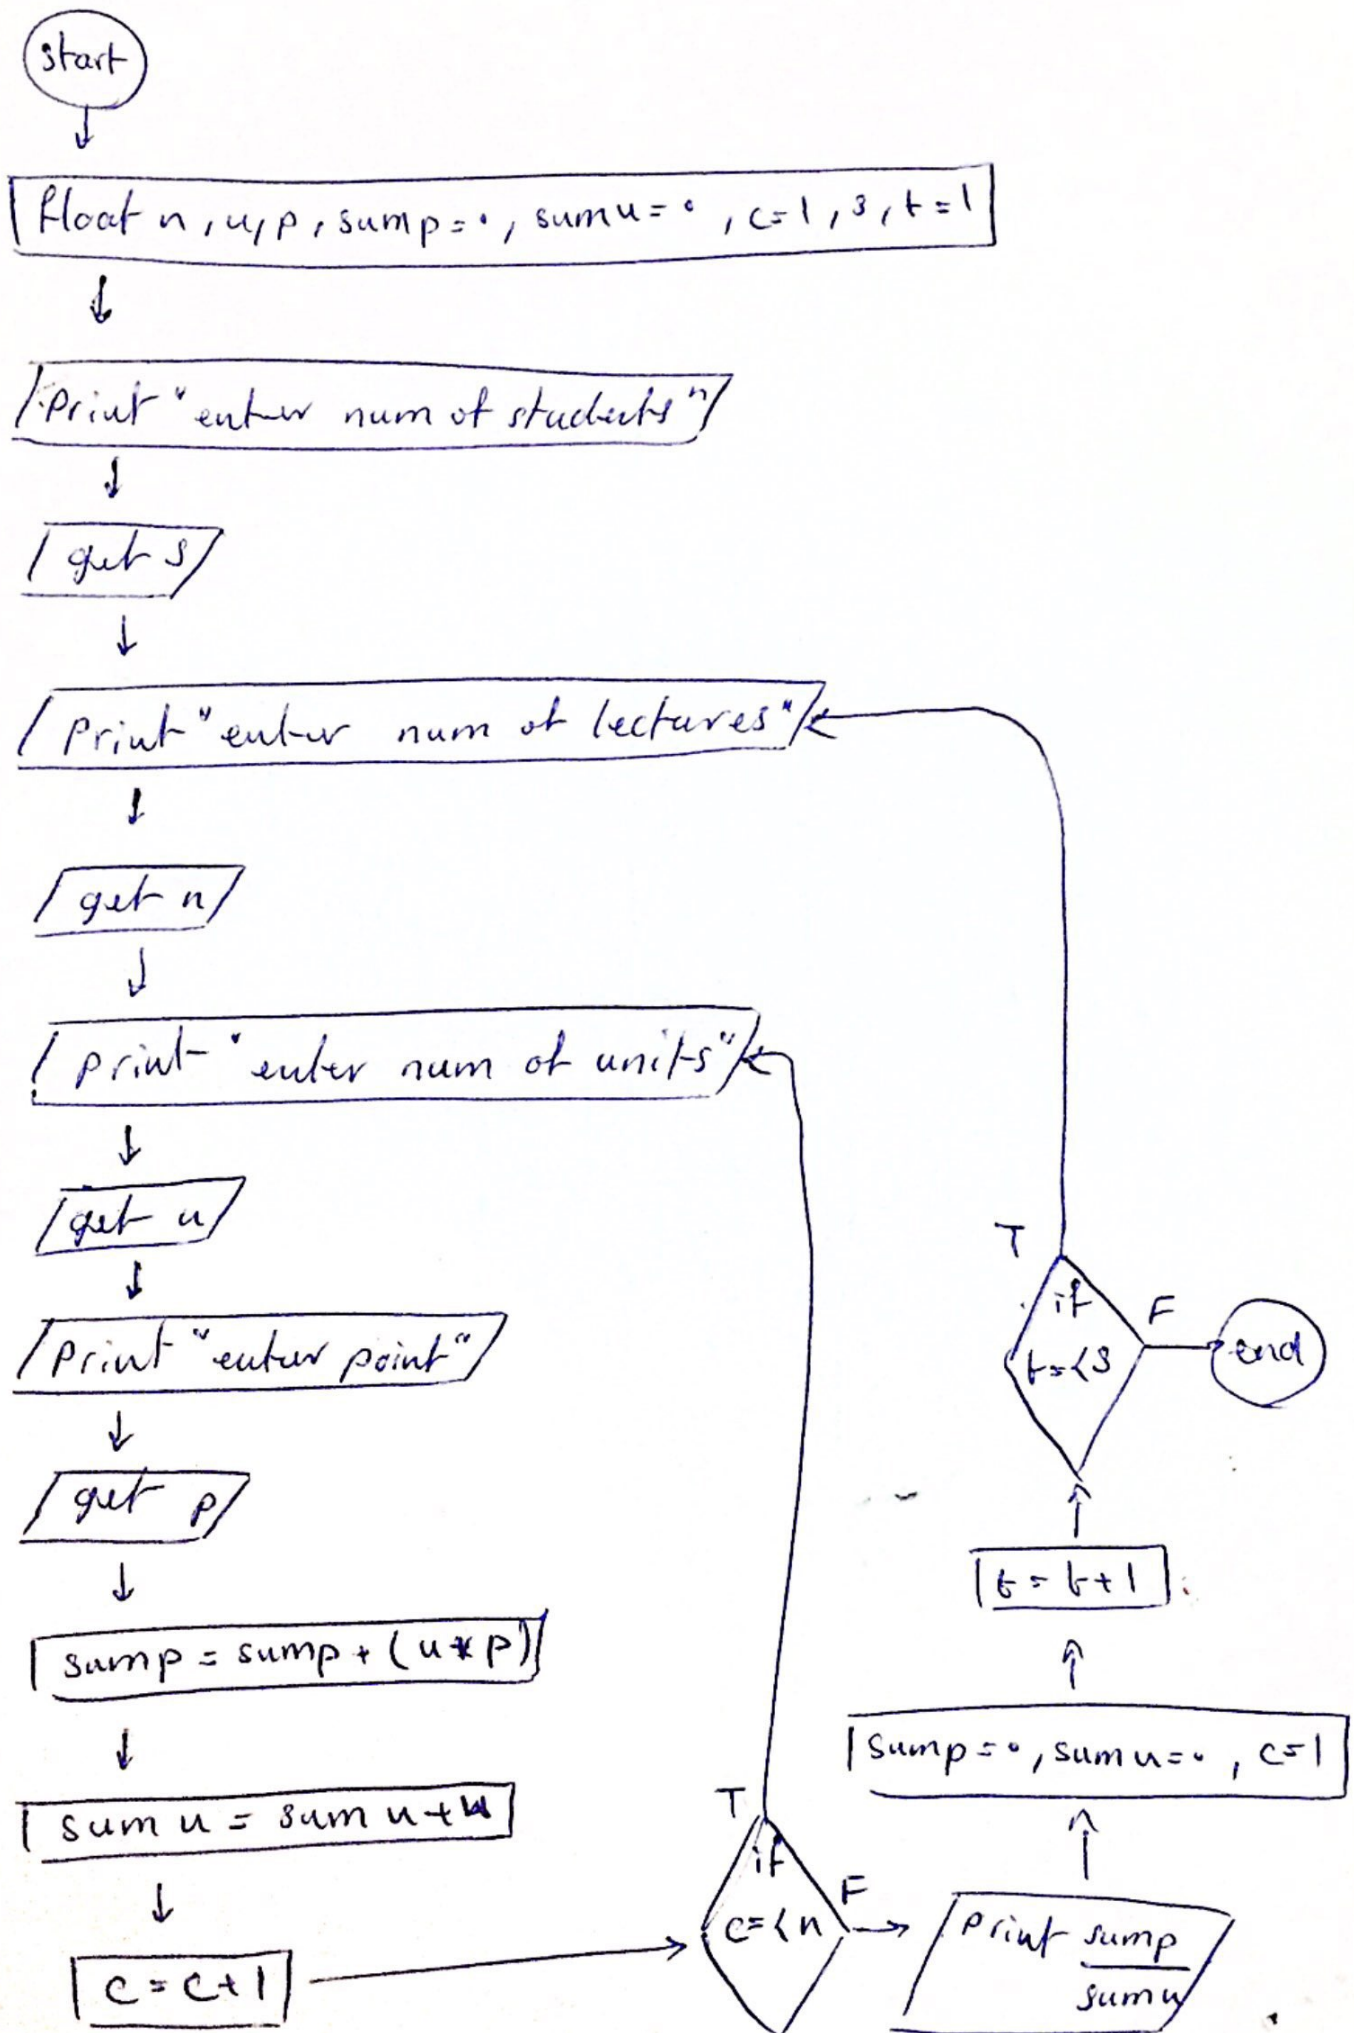 start
float n, u, p, sump=0, sumu=0, c=1, s, t=1
Print "enter num of students"
get s
Print "enter num of lectures"
get n
print "enter num of units"
get u
Print "enter point"
get p
sump = sump + (u*p)
sum u = sum u + u
c = c+1
T
if
c=<n
F
Print sump
sumu
sump=0, sumu=0, c=1
t = t+1
T
if
t=<s
F
end